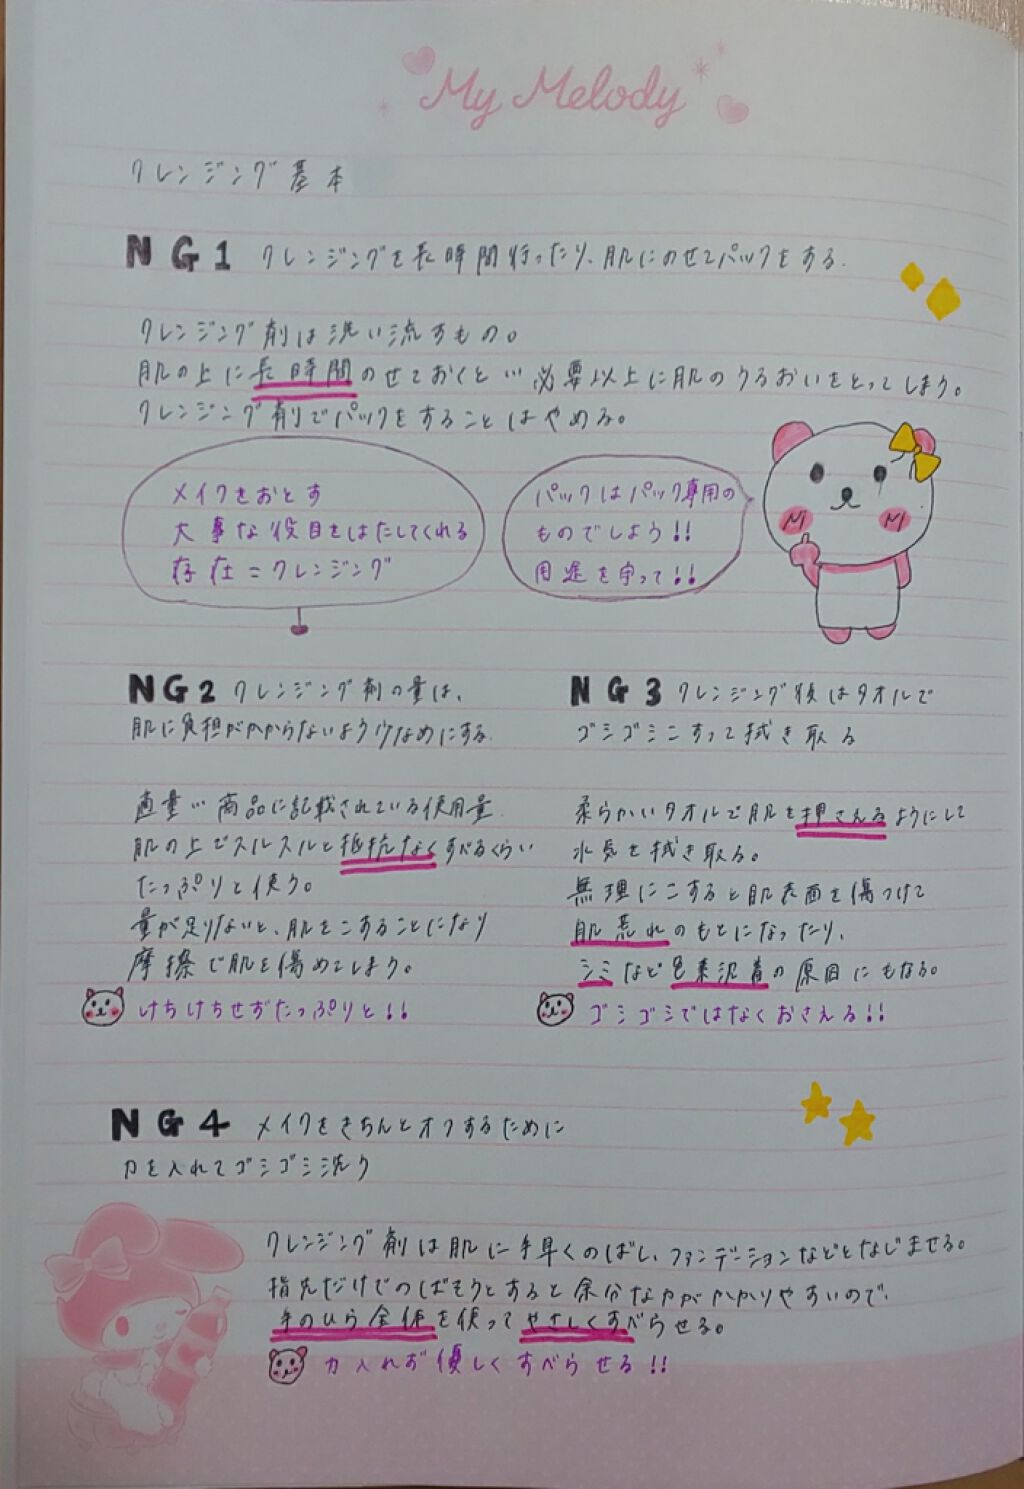 My Melody
クレンジング基本
NG1 クレンジングを長時間行ったり、肌にのせてパックをする.
クレンジング剤は洗い流すもの。
肌の上に長時間のせておくと…必要以上に肌のうるおいをとってしまう。
クレンジング剤でパックをすることはやめる。
メイクをおとす
大事な役目をはたしてくれる
存在=クレンジング
パックはパック専用の
ものでしよう!!
用途を守って!!
NG2 クレンジング剤の量は、
肌に負担がかからないよう少なめにする.
適量…商品に記載されている使用量.
肌の上でスルスルと抵抗なくすべるくらい
たっぷりと使う。
量が足りないと、肌をこすることになり
摩擦で肌を傷めてしまう。
けちけちせずたっぷりと!!
NG3 クレンジング後はタオルで
ゴシゴシこすって拭き取る
柔らかいタオルで肌を押さえるようにして
水気を拭き取る。
無理にこすると肌表面を傷つけて
肌荒れのもとになったり、
シミなど色素沈着の原因にもなる。
ゴシゴシではなくおさえる!!
NG4 メイクをきちんとオフするために
力を入れてゴシゴシ洗う
クレンジング剤は肌に手早くのばし、ファンデーションなどとなじませる。
指先だけでのばそうとすると余分な力がかかりやすいので、
手のひら全体を使ってやさしくすべらせる。
力入れず優しくすべらせる!!